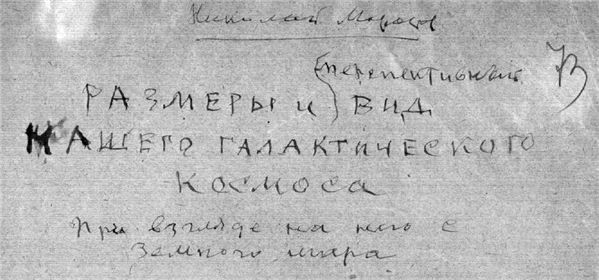 Николай Морозов
{перспективный
РАЗМЕРЫ и } ВИД
НАШЕГО ГАЛАКТИЧЕСКОГО
КОСМОСА
При взгляде на него с
Земного шара